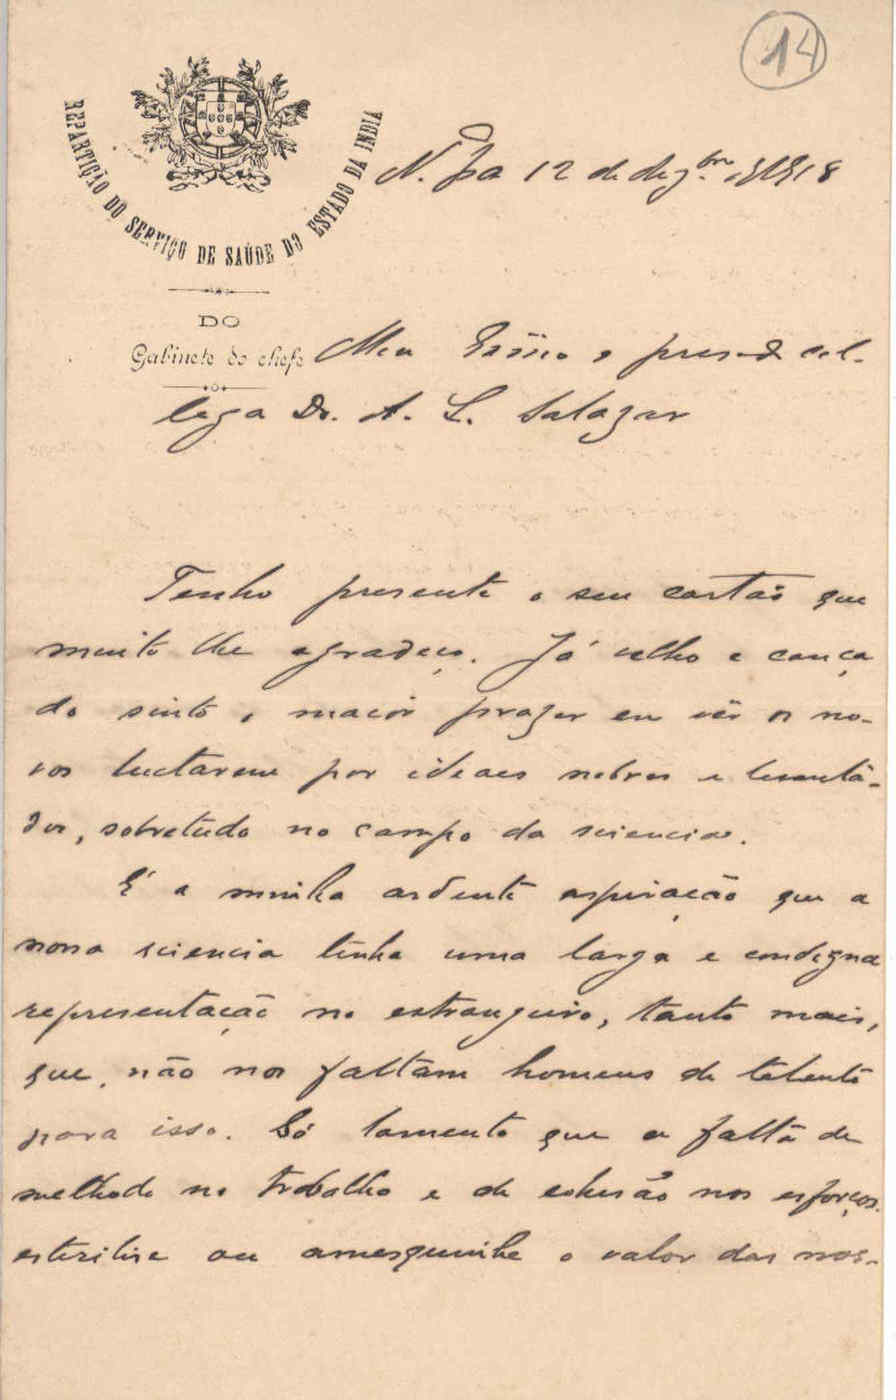 14
REPARTIÇÃO DO SERVIÇO DE SAÚDE DO ESTADO DA INDIA
N. Gôa 12 de dezbro 1918
DO
Gabinete do chefe
Meu Exmo e presado col-
lega Dr. A. L. Salazar
Tenho presente o seu cartão que
muito lhe agradeço. Já velho e cança
do sinto o maior prazer em vêr os no-
vos luctarem por ideaes nobres e levantã-
dos, sobretudo no campo da sciencia.
É a minha ardente aspiração que a
nossa sciencia tenha uma larga e condigna
representação no estrangeiro, tanto mais,
que não nos faltam homens de talento
para isso. Só lamento que a falta de
methodo no trabalho e de cohesão nos esforços
esterilise ou amesquinhe o valor das nos-